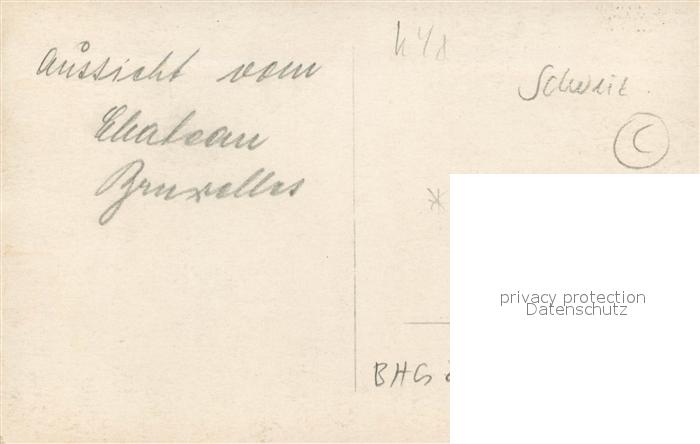 Aussicht vom
Chateau
Bruxelles
Schweiz
C
BHG
privacy protection
Datenschutz